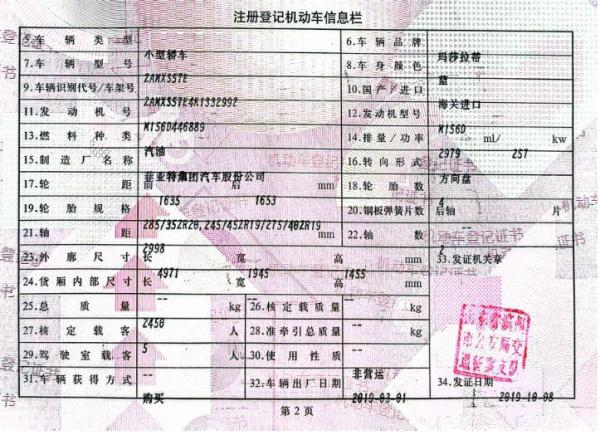 注册登记机动车信息栏
5.车辆类型 小型轿车 6.车辆品牌 玛莎拉蒂
7.车辆型号 ZAMXS57E 8.车身颜色 蓝
9.车辆识别代号/车架号 ZAMXS57E4K1332992 10.国产/进口 海关进口
11.发动机号 M156D446889 12.发动机型号 M156D
13.燃料种类 汽油 14.排量/功率 2979 ml/ 257 kw
15.制造厂名称 菲亚特集团汽车股份公司 16.转向形式 方向盘
17.轮距 前 1635 后 1653 mm 18.轮胎数 4
19.轮胎规格 285/35ZR20,245/45ZR19/275/40ZR19 20.钢板弹簧片数 后轴 -- 片
21.轴距 2998 mm 22.轴数 2
23.外廓尺寸 长 4971 宽 1945 高 1455 mm 33.发证机关章
24.货厢内部尺寸 长 -- 宽 -- 高 -- mm
25.总质量 2450 kg 26.核定载质量 -- kg
27.核定载客 5 人 28.准牵引总质量 -- kg
29.驾驶室载客 -- 人 30.使用性质 非营运
31.车辆获得方式 购买 32.车辆出厂日期 2019-03-01 34.发证日期 2019-10-08
第2页